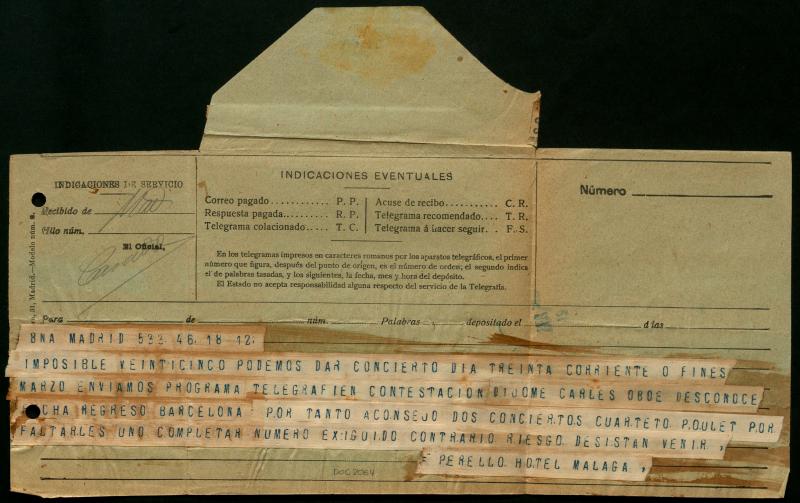 INDICACIONES DE SERVICIO
Recibido de
Hilo núm.
El Oficial,
INDICACIONES EVENTUALES
Correo pagado ............ P. P.
Respuesta pagada.......... R. P.
Telegrama colacionado ...... T. C.
Acuse de recibo........... C. R.
Telegrama recomendado.... T. R.
Telegrama á hacer seguir. . F. S.
En los telegramas impresos en caracteres romanos por los aparatos telegráficos, el primer
número que figura, después del punto de origen, es el número de orden; el segundo indica
el de palabras tasadas, y los siguientes, la fecha, mes y hora del depósito.
El Estado no acepta responsabilidad alguna respecto del servicio de la Telegrafía.
Número
31, Madrid.—Modelo núm.
Para de núm. Palabras depositado el á las
BNA MADRID 532 46 18 12
IMPOSIBLE VEINTICINCO PODEMOS DAR CONCIERTO DIA TREINTA CORRIENTE O FINES
MARZO ENVIAMOS PROGRAMA TELEGRAFIEN CONTESTACION DIJOME CARLES OBOE DESCONOCE
CHA REGRESO BARCELONA POR TANTO ACONSEJO DOS CONCIERTOS CUARTETO POULET POR
FALTARLES UNO COMPLETAR NUMERO EXIGUIDO CONTRARIO RIESGO DESISTAN VENIR ,
PERELLO HOTEL MALAGA ,
DOC 2064